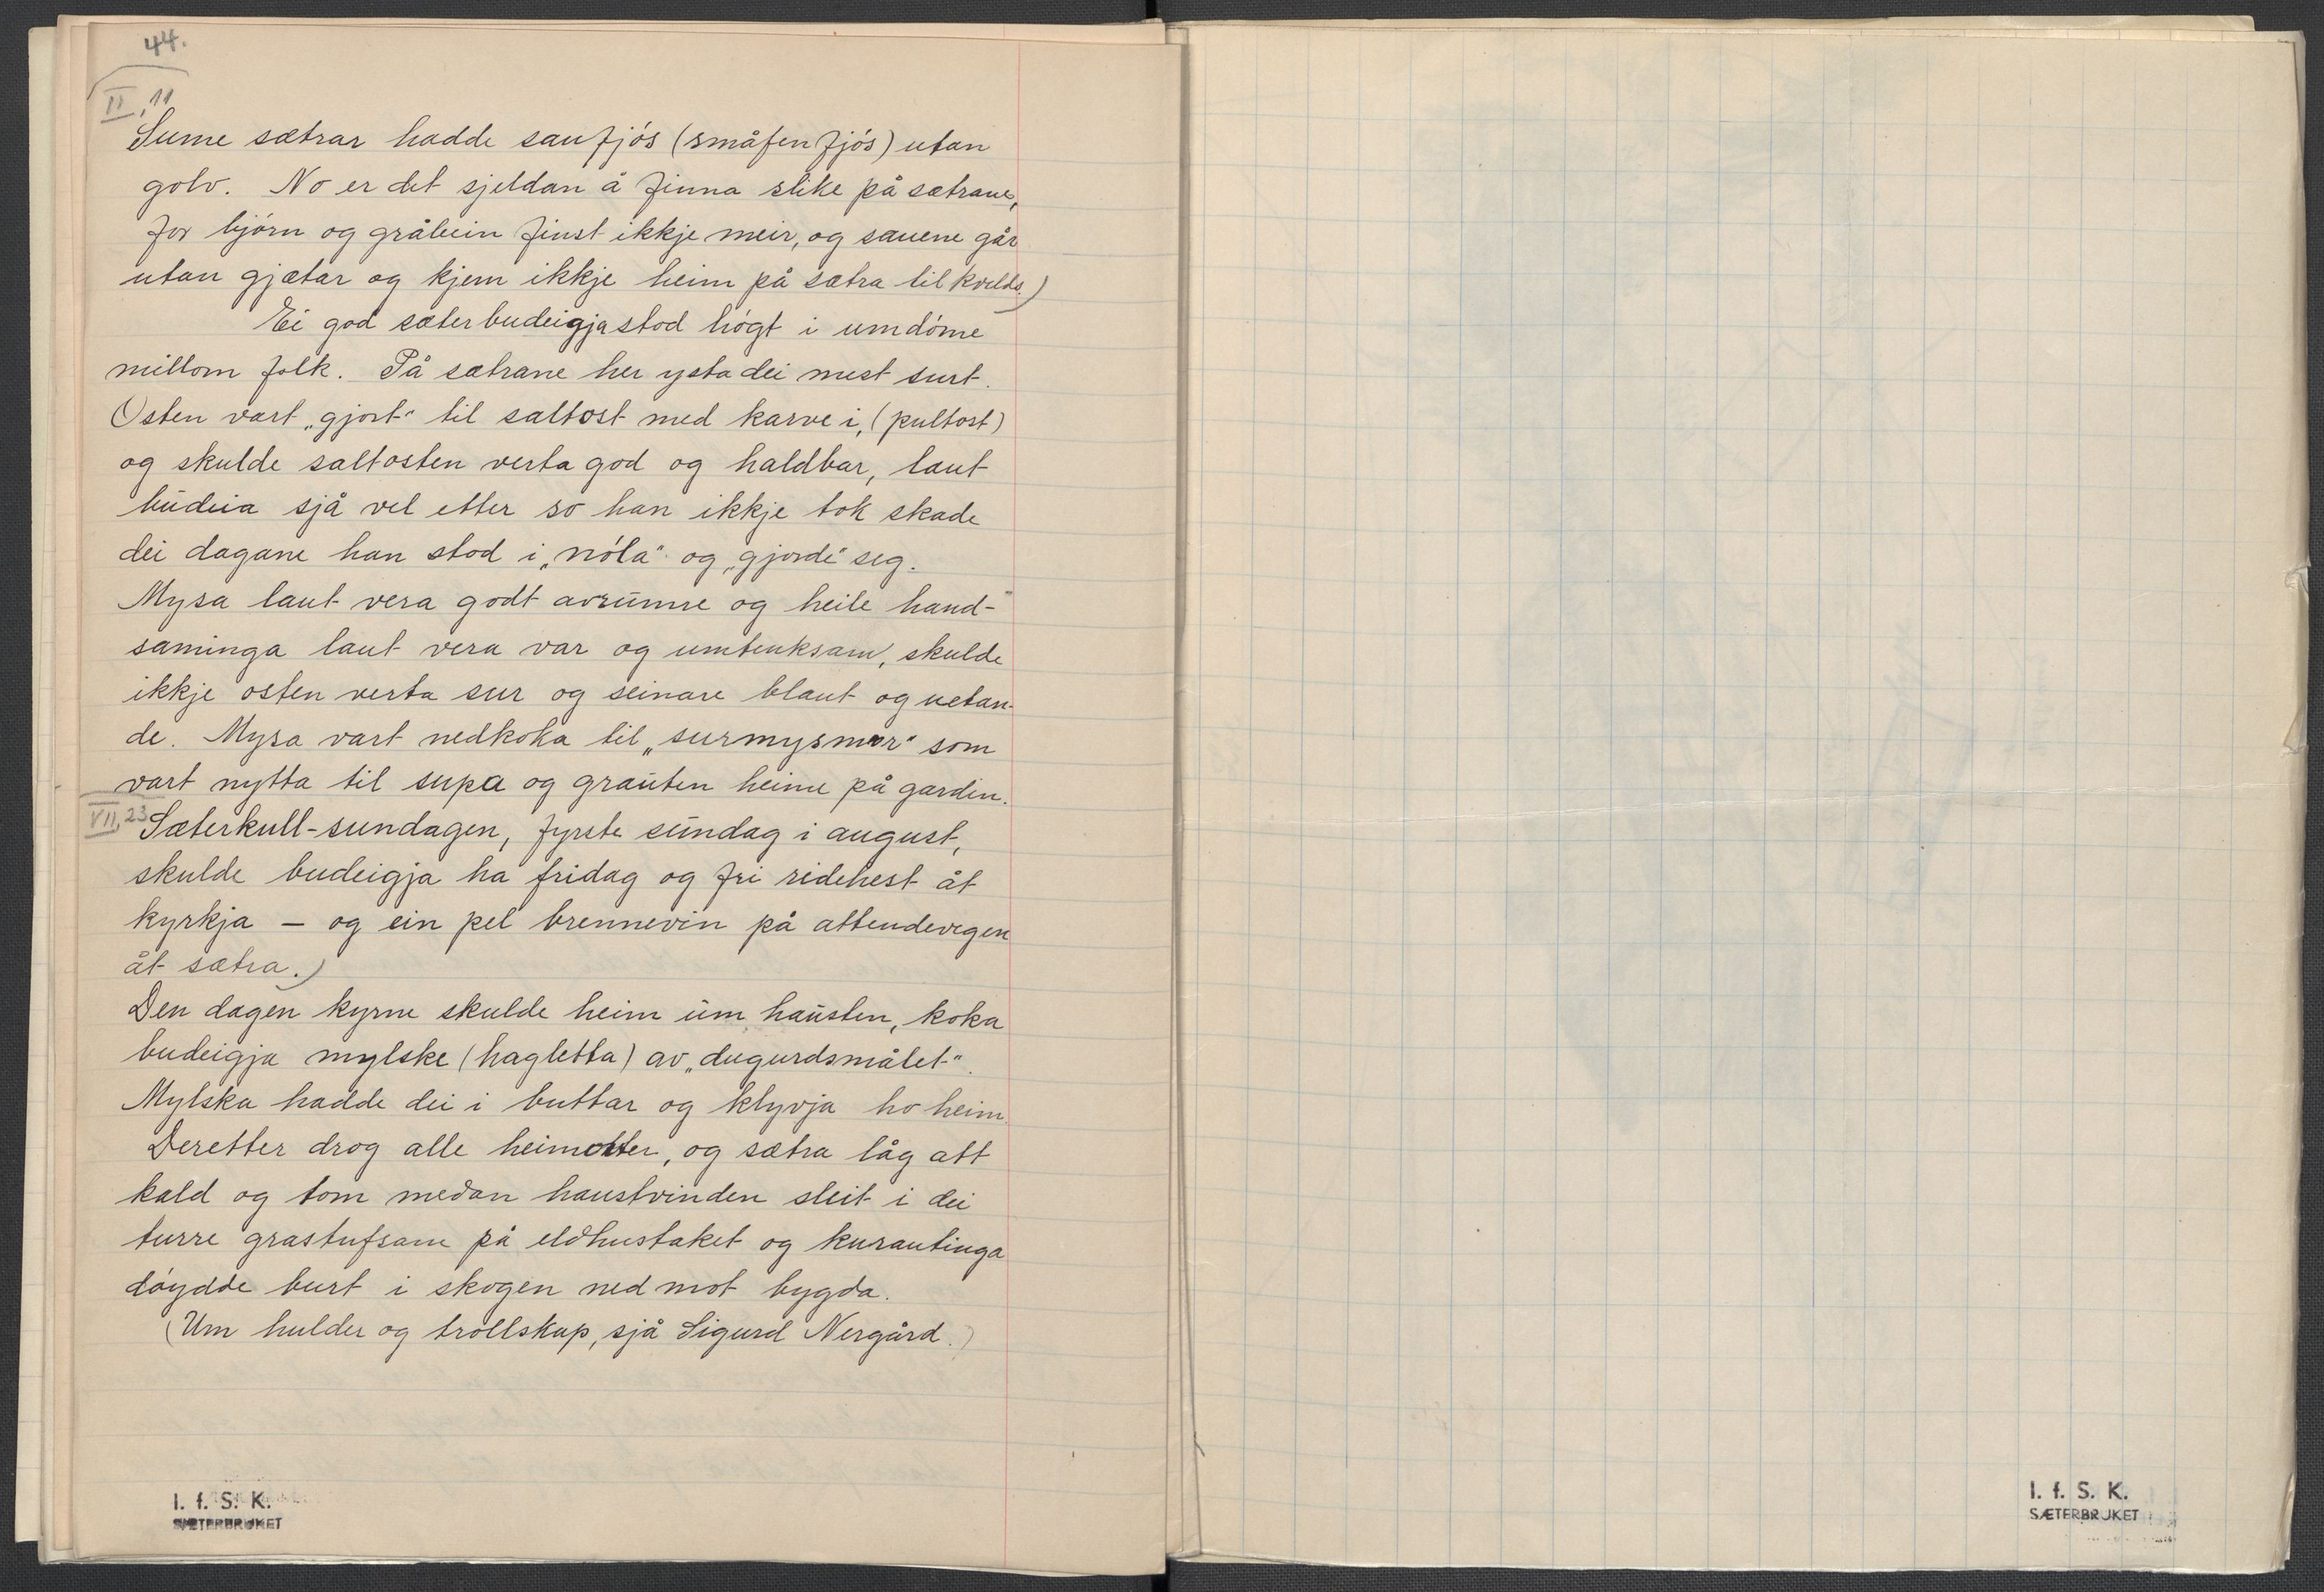 44.
II, 11
Sume sætrar hadde saufjós (småfenfjós) utan
golv. No er det sjeldan å finna slike på sætrane,
for bjórn og gråbein finst ikkje meir, og sauene går
utan gjætar og kjem ikkje heim på sætra til kvelds.)
Ei god sæterbudeigja stod högt i umdóme
millom folk. På sætrane her ysta dei mest surt.
Osten vart „gjort“ til saltost med karve i, (pultost)
og skulde saltosten verta god og haldbar, laut
budeia sjå vel etter so han ikkje tok skade
dei dagane han stod i „nóla“ og „gjorde“ seg.
Mysa laut vera godt avrunne og heile hand-
saminga laut vera var og umtenksam, skulde
ikkje osten verta sur og seinare blaut og uetan-
de. Mysa vart nedkoka til „surmysmør“ som
vart nytta til supa og grauten heime på garden.
VII, 23 Sæterkull-sundagen, fyrste sundag i august,
skulde budeigja ha fridag og fri ridehest åt
kyrkja – og ein pel brennevin på attendevegen
åt sætra.)
Den dagen kyrne skulde heim um hausten, koka
budeigja mylske (hagletta) av „dugurdsmålet“.
Mylska hadde dei i buttar og klyvja ho heim.
Deretter drog alle heimatter, og sætra låg att
kald og tom medan haustvinden sleit i dei
turre grastufsane på eldhustaket og kurautinga
dóydde burt i skogen ned mot bygda.
(Um hulder og trollskap, sjå Sigurd Nergård.)
I. f. S. K.
SÆTERBRUKET
I. f. S. K.
SÆTERBRUKET